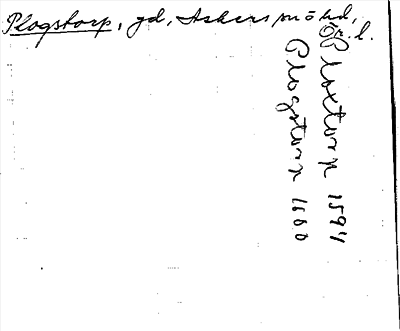 Plogstorp, gd, Askers sn ö hd,
Ör. l.
Ploxtorp 1594
Plogstorp 1600